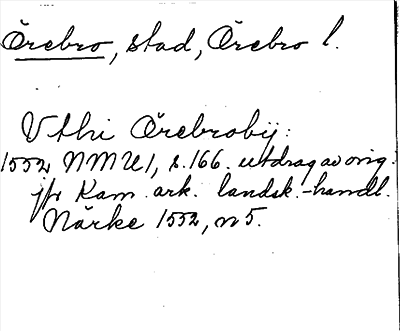 Örebro, stad, Örebro l.
Vthi Örebroby:
1552 NMU1, s. 166. utdrag av orig.
jfr Kam. ark. landsk.-handl.
Närke 1552, nr 5.